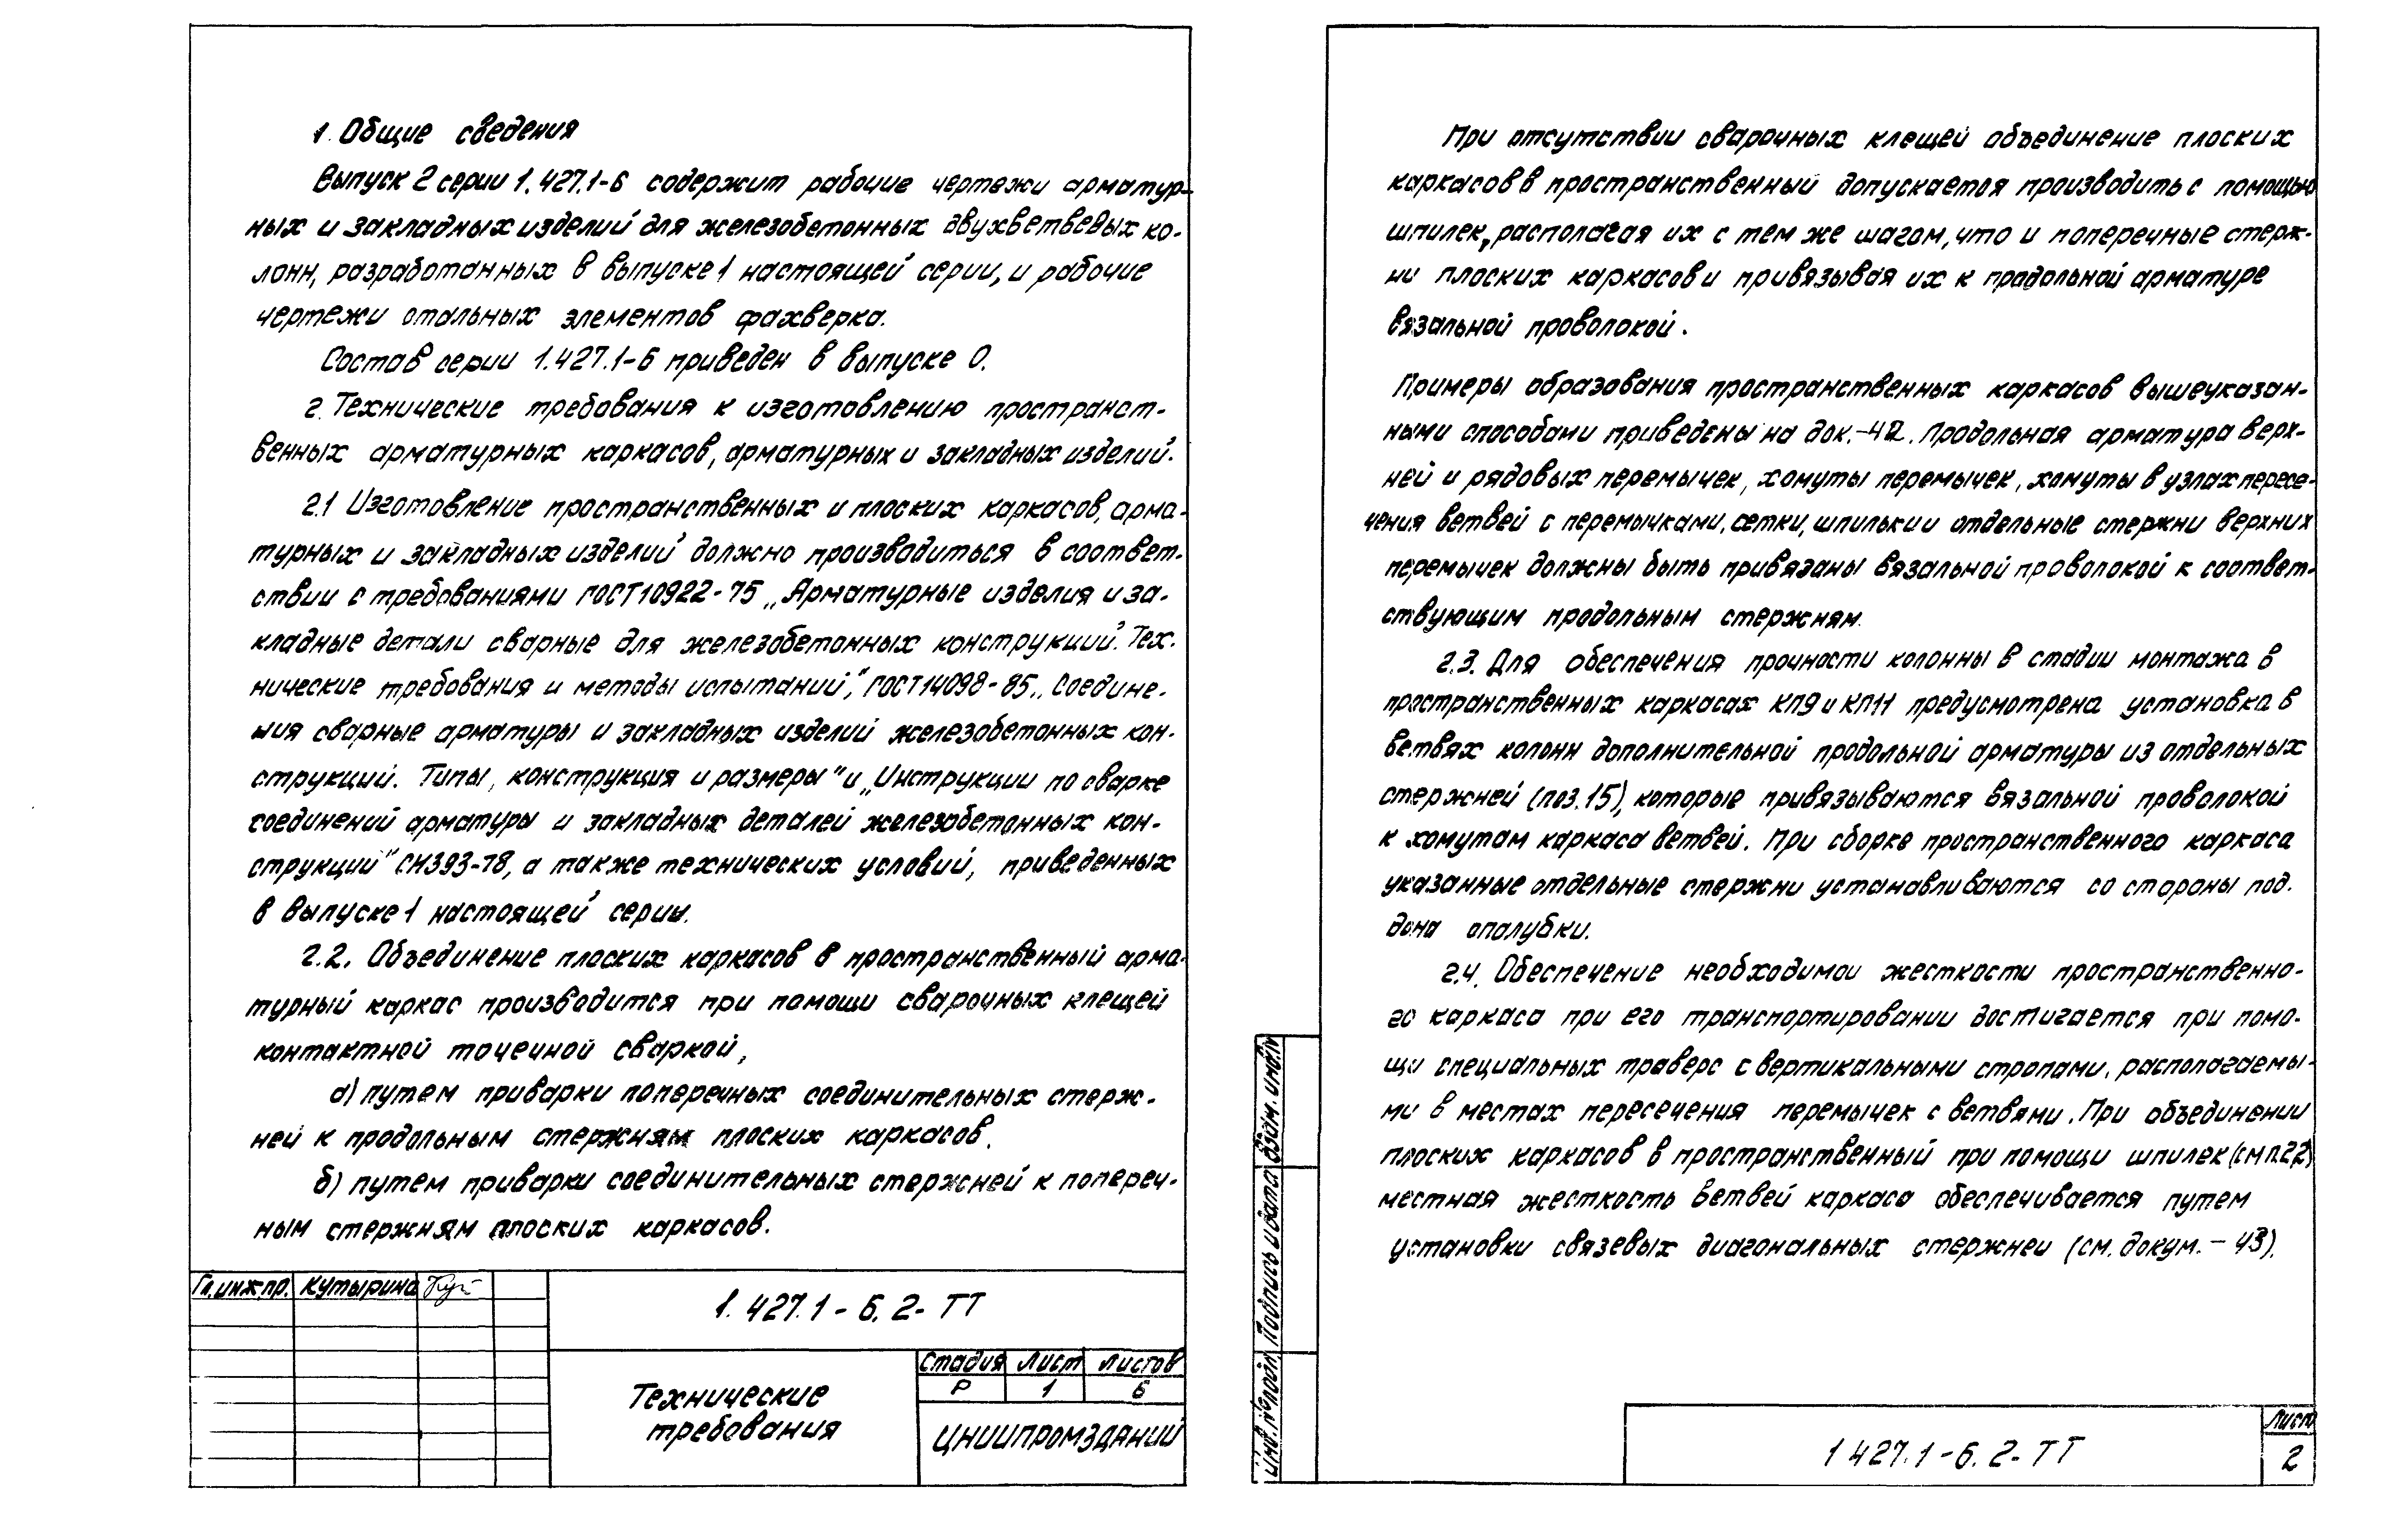 1. Общие сведения
Выпуск 2 серии 1.427.1-6 содержит рабочие чертежи арматур-
ных и закладных изделий для железобетонных двухветвевых ко-
лонн, разработанных в выпуске 1 настоящей серии, и рабочие
чертежи стальных элементов фахверка.
Состав серии 1.427.1-6 приведен в выпуске 0.
2. Технические требования к изготовлению пространст-
венных арматурных каркасов, арматурных и закладных изделий.
2.1 Изготовление пространственных и плоских каркасов, арма-
турных и закладных изделий должно производиться в соответ-
ствии с требованиями ГОСТ 10922-75 „Арматурные изделия и за-
кладные детали сварные для железобетонных конструкций. Тех-
нические требования и методы испытаний“, ГОСТ 14098-85 „Соедине-
ния сварные арматуры и закладных изделий железобетонных кон-
струкций. Типы, конструкция и размеры" и „Инструкции по сварке
соединений арматуры и закладных деталей железобетонных кон-
струкций" СН393-78, а также технических условий, приведенных
в выпуске 1 настоящей серии.
2.2. Объединение плоских каркасов в пространственный арма-
турный каркас производится при помощи сварочных клещей
контактной точечной сваркой,
а) путем приварки поперечных соединительных стерж-
ней к продольным стержням плоских каркасов.
б) путем приварки соединительных стержней к попереч-
ным стержням плоских каркасов.
Гл. инж. пр. Кутырина
1.427.1-6.2-ТТ
Технические
требования
Стадия Лист Листов
Р 1 6
ЦНИИПРОМЗДАНИЙ
При отсутствии сварочных клещей объединение плоских
каркасов в пространственный допускается производить с помощью
шпилек, располагая их с тем же шагом, что и поперечные стерж-
ни плоских каркасов и привязывая их к продольной арматуре
вязальной проволокой.
Примеры образования пространственных каркасов вышеуказан-
ными способами приведены на док.-42. Продольная арматура верх-
ней и рядовых перемычек, хомуты перемычек, хомуты в узлах пересе-
чения ветвей с перемычками, сетки, шпильки и отдельные стержни верхних
перемычек должны быть привязаны вязальной проволокой к соответ-
ствующим продольным стержням.
2.3. Для обеспечения прочности колонны в стадии монтажа в
пространственных каркасах КП9 и КП11 предусмотрена установка в
ветвях колонн дополнительной продольной арматуры из отдельных
стержней (поз.15), которые привязываются вязальной проволокой
к хомутам каркаса ветвей. При сборке пространственного каркаса
указанные отдельные стержни устанавливаются со стороны под-
дона опалубки.
2.4. Обеспечение необходимой жесткости пространственно-
го каркаса при его транспортировании достигается при помо-
щи специальных траверс с вертикальными стропами, располагаемы-
ми в местах пересечения перемычек с ветвями. При объединении
плоских каркасов в пространственный при помощи шпилек (см п.2.2)
местная жесткость ветвей каркаса обеспечивается путем
установки связевых диагональных стержней (см. докум.-43).
Инв. № подл. Подпись и дата Взам. инв. №
1 427.1-6.2-ТТ
Лист
2